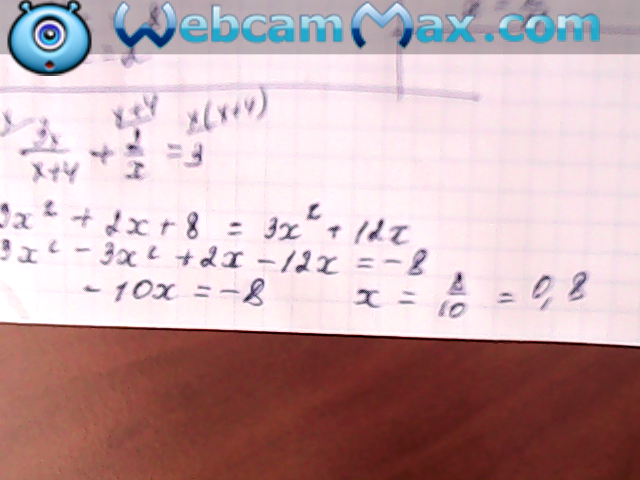 WebcamMax.com
x x+4 x(x+4)
3x/x+4 + 2/x = 3
3x² + 2x + 8 = 3x² + 12x
3x² - 3x² + 2x - 12x = -8
- 10x = -8 x = 8/10 = 0,8